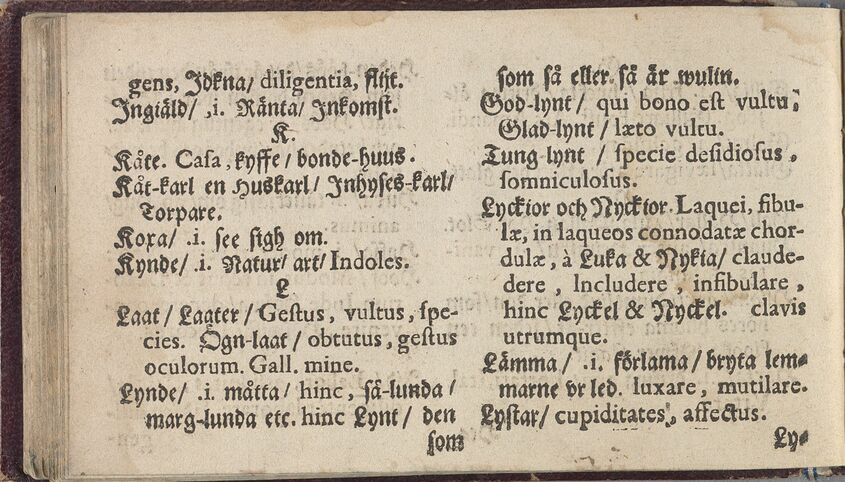 gens, Idkna/ diligentia, flijt.
Ingiäld/ .i. Ränta/ Inkomst.
K.
Kåte. Casa, kyffe/ bonde-huus.
Kåt-karl en Huskarl/ Inhyses-karl/
Torpare.
Koxa/ .i. see sigh om.
Kynde/ .i. Natur/ art/ Indoles.
L
Laat/ Laater/ Gestus, vultus, spe-
cies. Ögn-laat/ obtutus, gestus
oculorum. Gall. mine.
Lynde/ .i. måtta/ hinc, så-lunda/
marg-lunda etc. hinc Lynt/ den
som
som så eller så är wulin.
God-lynt/ qui bono est vultu;
Glad-lynt/ læto vultu.
Tung-lynt/ specie desidiosus,
somniculosus.
Lyckior och Nyckior. Laquei, fibu-
læ, in laqueos connodatæ chor-
dulæ, à Luka & Nykia/ claude-
dere, Includere, infibulare,
hinc Lyckel & Nyckel. clavis
utrumque.
Lämma/ .i. förlama/ bryta lem-
marne vr led. luxare, mutilare.
Lystar/ cupiditates, affectus.
Ly-